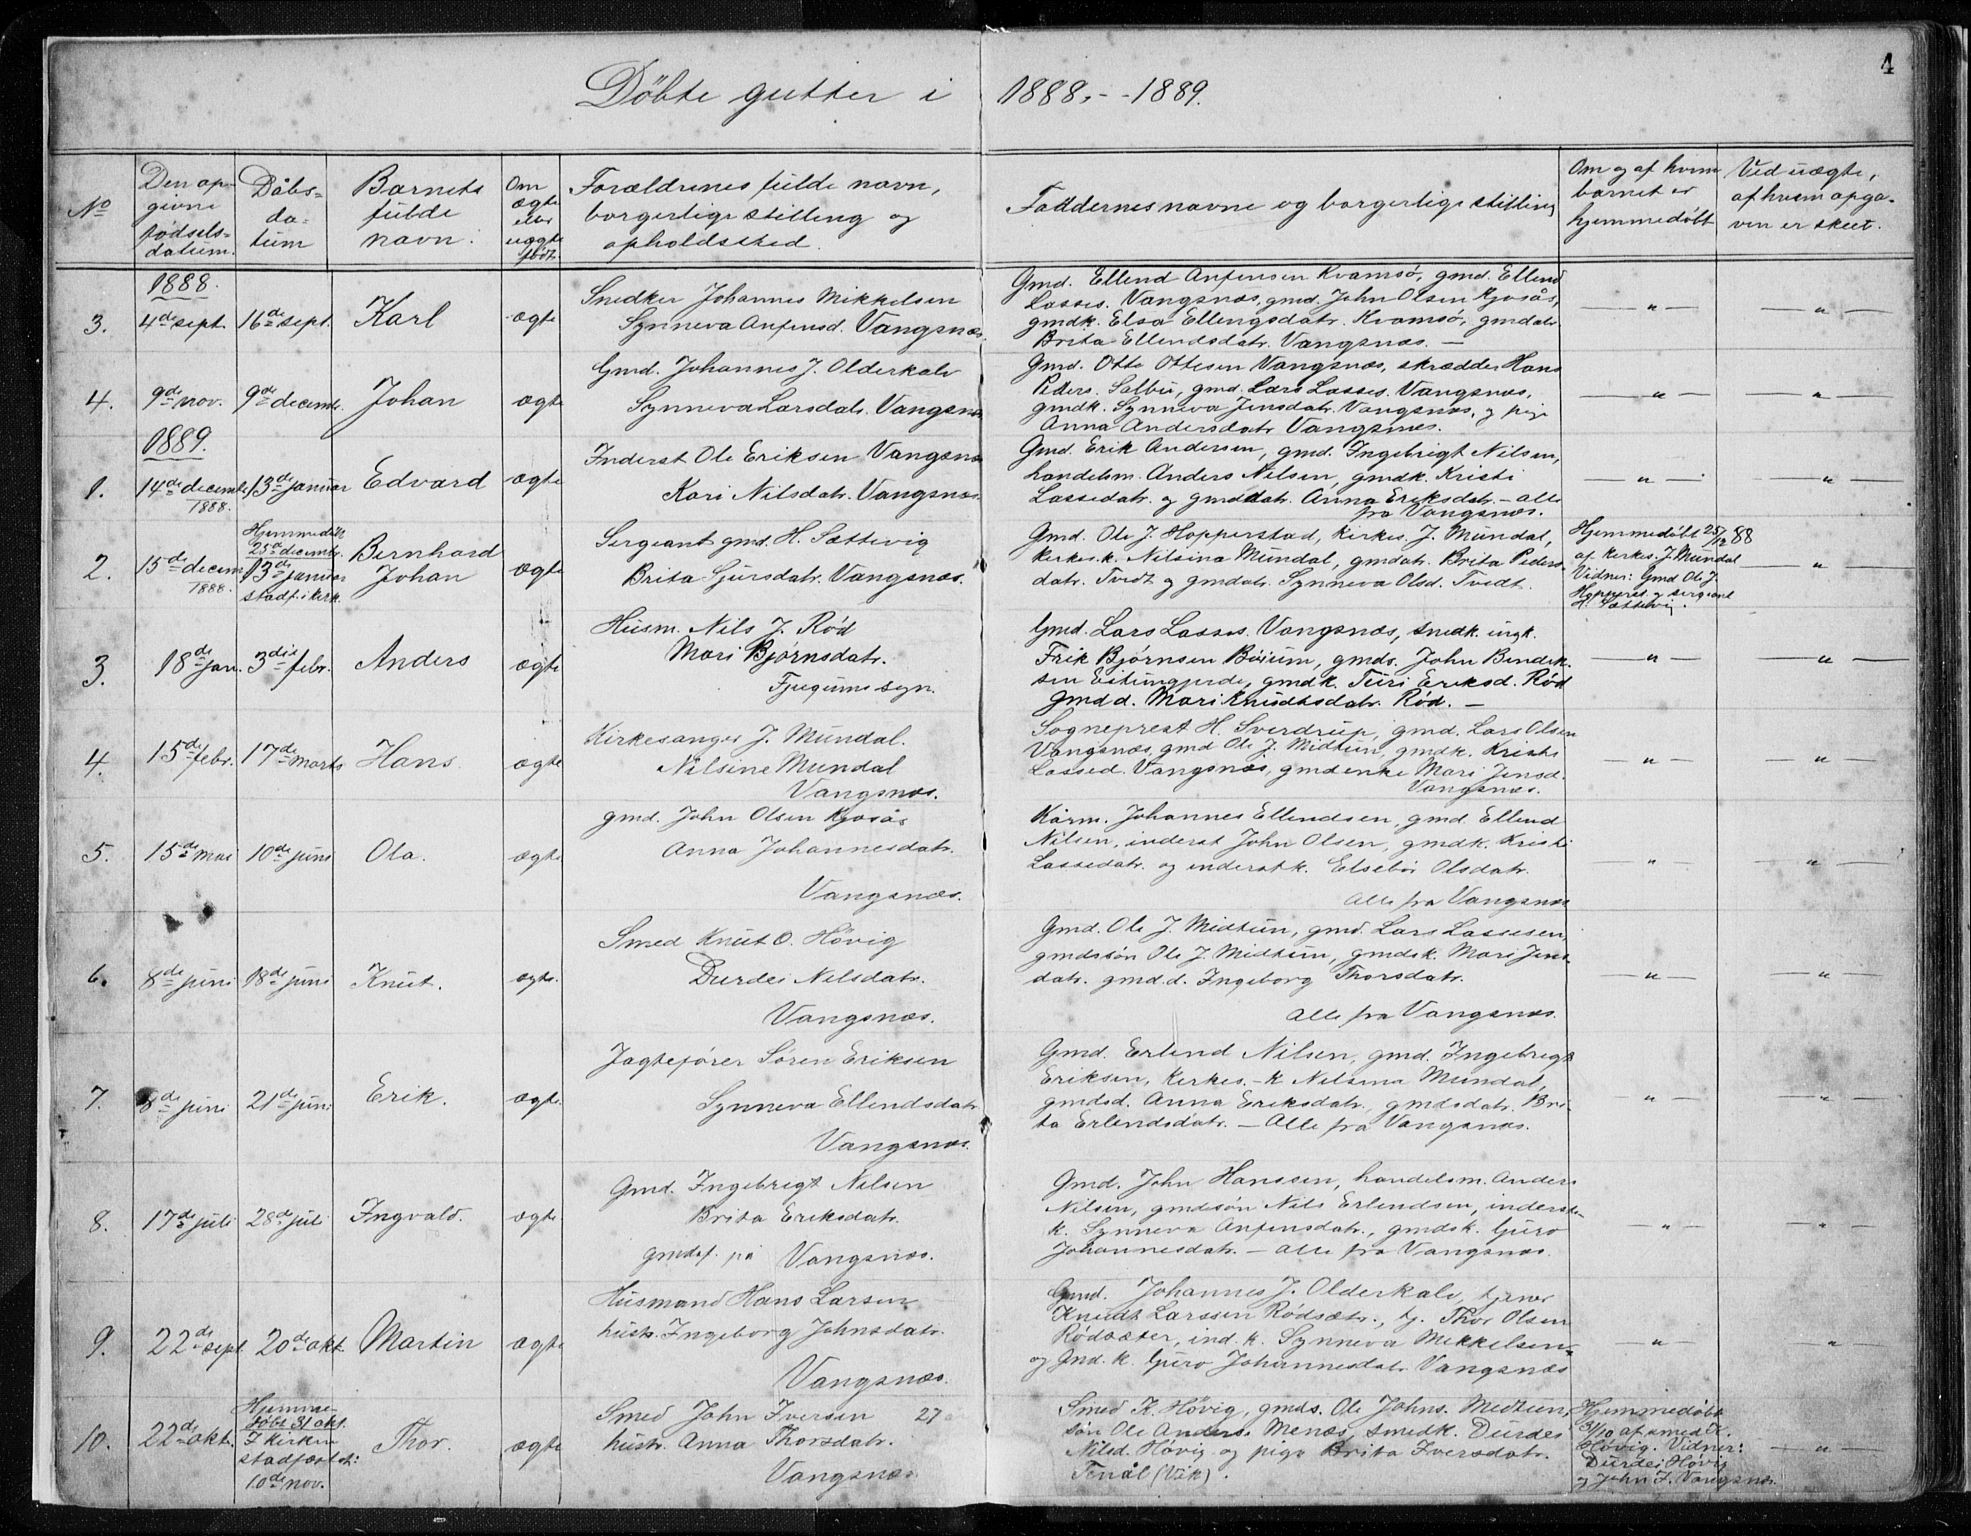 4
Döbte gutter i 1888. - -1889.
No
Den opgivne fødselsdatum.
Dåbsdatum
Barnets fulde navn.
Om ægte eller uægte født.
Forældrenes fulde navn, borgerlige stilling og opholdssted.
Faddernes navne og borgerlige stilling
Om og af hvem barnet er hjemmedöbt
Ved uægte, af hvem opgaven er skeet.
1888.
3. 4de sept. 16de sept. Karl ægte
Snedker Johannes Mikkelsen
Synneva Anfensd. Vangsnæs.
Gmd. Ellend Anfensen Kvamsö, gmd. Ellend
Lasses. Vangsnæs, gmd. John Olsen Kjosås,
gmdk. Elsa Ellengsdatr. Kvamsö, gmdatr
Brita Ellendsdatr. Vangsnæs. —
— " — — " —
4. 9de nov. 9de decemb. Johan ægte
Gmd. Johannes J. Olderkalv
Synneva Larsdatr. Vangsnæs
Gmd. Otto Ottesen Vangsnæs, skrædder Hans
Peders. Salbu, gmd. Lars Lasses. Vangsnæs,
gmdk. Synneva Jensdatr. Vangsnæs, og pige
Anna Andersdatr Vangsnæs.
— " — — " —
1889.
1. 14de decemb. 1888. 13de januar Edvard ægte
Inderst Ole Eriksen Vangsnæs
Kari Nilsdatr. Vangsnæs.
Gmd. Erik Andersen, gmd. Ingebrigt Nilsen,
handelsm. Anders Nilsen, gmdk. Kristi
Lassedatr. og gmddatr. Anna Eriksdatr. - alle
fra Vangsnæs.
— " — — " —
2. 15de decemb. 1888.
Hjemmedöbt
25de decemb.
13de januar
stadf. i kirk.
Bernhard
Johan
ægte
Sergeant gmd. H. Sættevig
Brita Sjursdatr. Vangsnæs.
Gmd. Ole J. Hopperstad, Kirkes. J. Mundal,
kirkes.k. Nilsina Mundal, gmdatr. Brita Peders-
datr. Tvedt og gmdatr. Synneva Olsd. Tvedt.
Hjemmedöbt 25/12 88
af kirkes. J. Mundal
Vidner: Gmd Ole J.
Hopperst. og sergeant
H. Sættevig.
— " —
3. 18de jan. 3die febr. Anders ægte
Husm. Nils J. Rød
Mari Bjørnsdatr.
Fjegums sgn.
Gmd. Lars Lasses. Vangsnæs, snedk. ungk.
Erik Bjørnsen Böium, gmds. John Bendik-
sen Eitungjerde, gmdk. Turi Eriksd. Rød
gmdd. Mari Knudtsdatr. Rød. —
— " — — " —
4. 15de febr. 17de marts Hans ægte
Kirkesanger J. Mundal.
Nilsine Mundal
Vangsnæs.
Sogneprest H. Sverdrup, gmd. Lars Olsen
Vangsnæs, gmd Ole J. Midtun, gmdk. Kristi
Lassed. Vangsnæs, gmdenke Mari Jensd.
Vangsnæs.
— " — — " —
5. 15de mai 10de juni Ola. ægte
gmd. John Olsen Kjosås
Anna Johannesdatr.
Vangsnæs.
Kårm. Johannes Ellendsen, gmd. Ellend
Nilsen, inderst John Olsen, gmdk. Kristi
Lassedatr. og inderstk. Elsebö Olsdatr.
Alle fra Vangsnæs
— " — — " —
6. 8de juni 18de juni Knut. ægte.
Smed Knut O. Hövig
Durdei Nilsdatr.
Vangsnæs.
Gmd. Ole J. Midtun, gmd. Lars Lassesen,
gmdssön Ole J. Midtun, gmdsk. Mari Jens
datr. gmd.d. Ingeborg Thorsdatr.
Alle fra Vangsnæs.
— " — — " —
7. 8de juni 21de juni Erik. ægte.
Jagtefører Sören Eriksen
Synneva Ellendsdatr
Vangsnæs.
Gmd. Erlend Nilsen, gmd. Ingebrigt
Eriksen, Kirkes.-k Nilsina Mundal,
gmdsd. Anna Eriksdatr., gmdsdatr. Bri-
ta Erlendsdatr. — Alle fra Vangsnæs.
— " — — " —
8. 17de juli 28de juli Ingvald. ægte
Gmd. Ingebrigt Nilsen
Brita Eriksdatr.
gmdsf. på Vangsnæs.
Gmd. John Hanssen, handelsm. Anders
Nilsen, gmdsön Nils Erlendsen, inderste-
k. Synneva Anfensdatr., gmdsk. Guro
Johannesdatr. — alle fra Vangsnæs.
— " — — " —
9. 22de sept. 20de okt. Martin ægte
Husmand Hans Larsen
hustr. Ingeborg Johnsdatr.
Vangsnæs.
Gmd. Johannes J. Olderkalv, tjener
Knudt Larssen Rödsætr., tj. Thor Olsen
Rödsæter, ind.k. Synneva Mikkelsen-
og Gmd.k. Guro Johannesdatr Vangsnæs
— " — "
10. 22de okt.
Hjemme-
döbt 31 okt.
I kirken
stadfæstet:
10de nov.
Thor. ægte
Smed John Iversen 27
hustr. Anna Thorsdatr.
Vangsnæs
Smed K. Hövig, gmds. Ole Johns. Midtun,
sön Ole Anders. Menæs, smedk. Durdei
Nilsd. Hövig og pige Brita Iversdatr.
Tenål (Vik).
Hjemmedöbt
31/10 af smed K.
Hövig. Vidner:
Durdei Hövig
og John I. Vangsnæs.
— " —